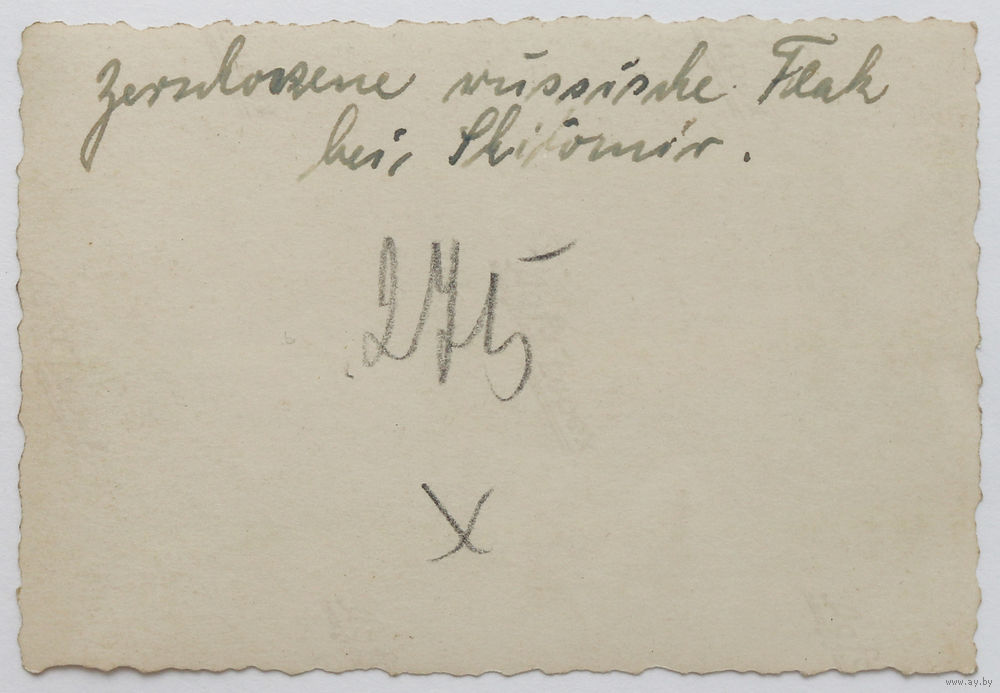 Zerschossene russische Flak
bei Shitomir.
275
X
www.ay.by